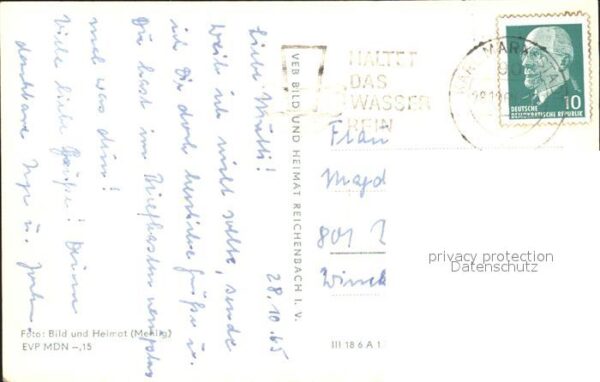 28.10.65
Liebe Mutti!
Weil ich nicht sollte, sende
ich Dir doch herzliche Grüße u.
Du hast im Briefkasten
mal was drin!
Viele liebe Grüße! Deine
dankbare Inge u.
VEB BILD UND HEIMAT REICHENBACH I. V.
Foto: Bild und Heimat (Mehlig)
EVP MDN –,15
HALTET
DAS
WASSER
REIN
DEUTSCHE
DEMOKRATISCHE REPUBLIK
10
Frau
Magd
801
III 18 6 A 1
privacy protection
Datenschutz